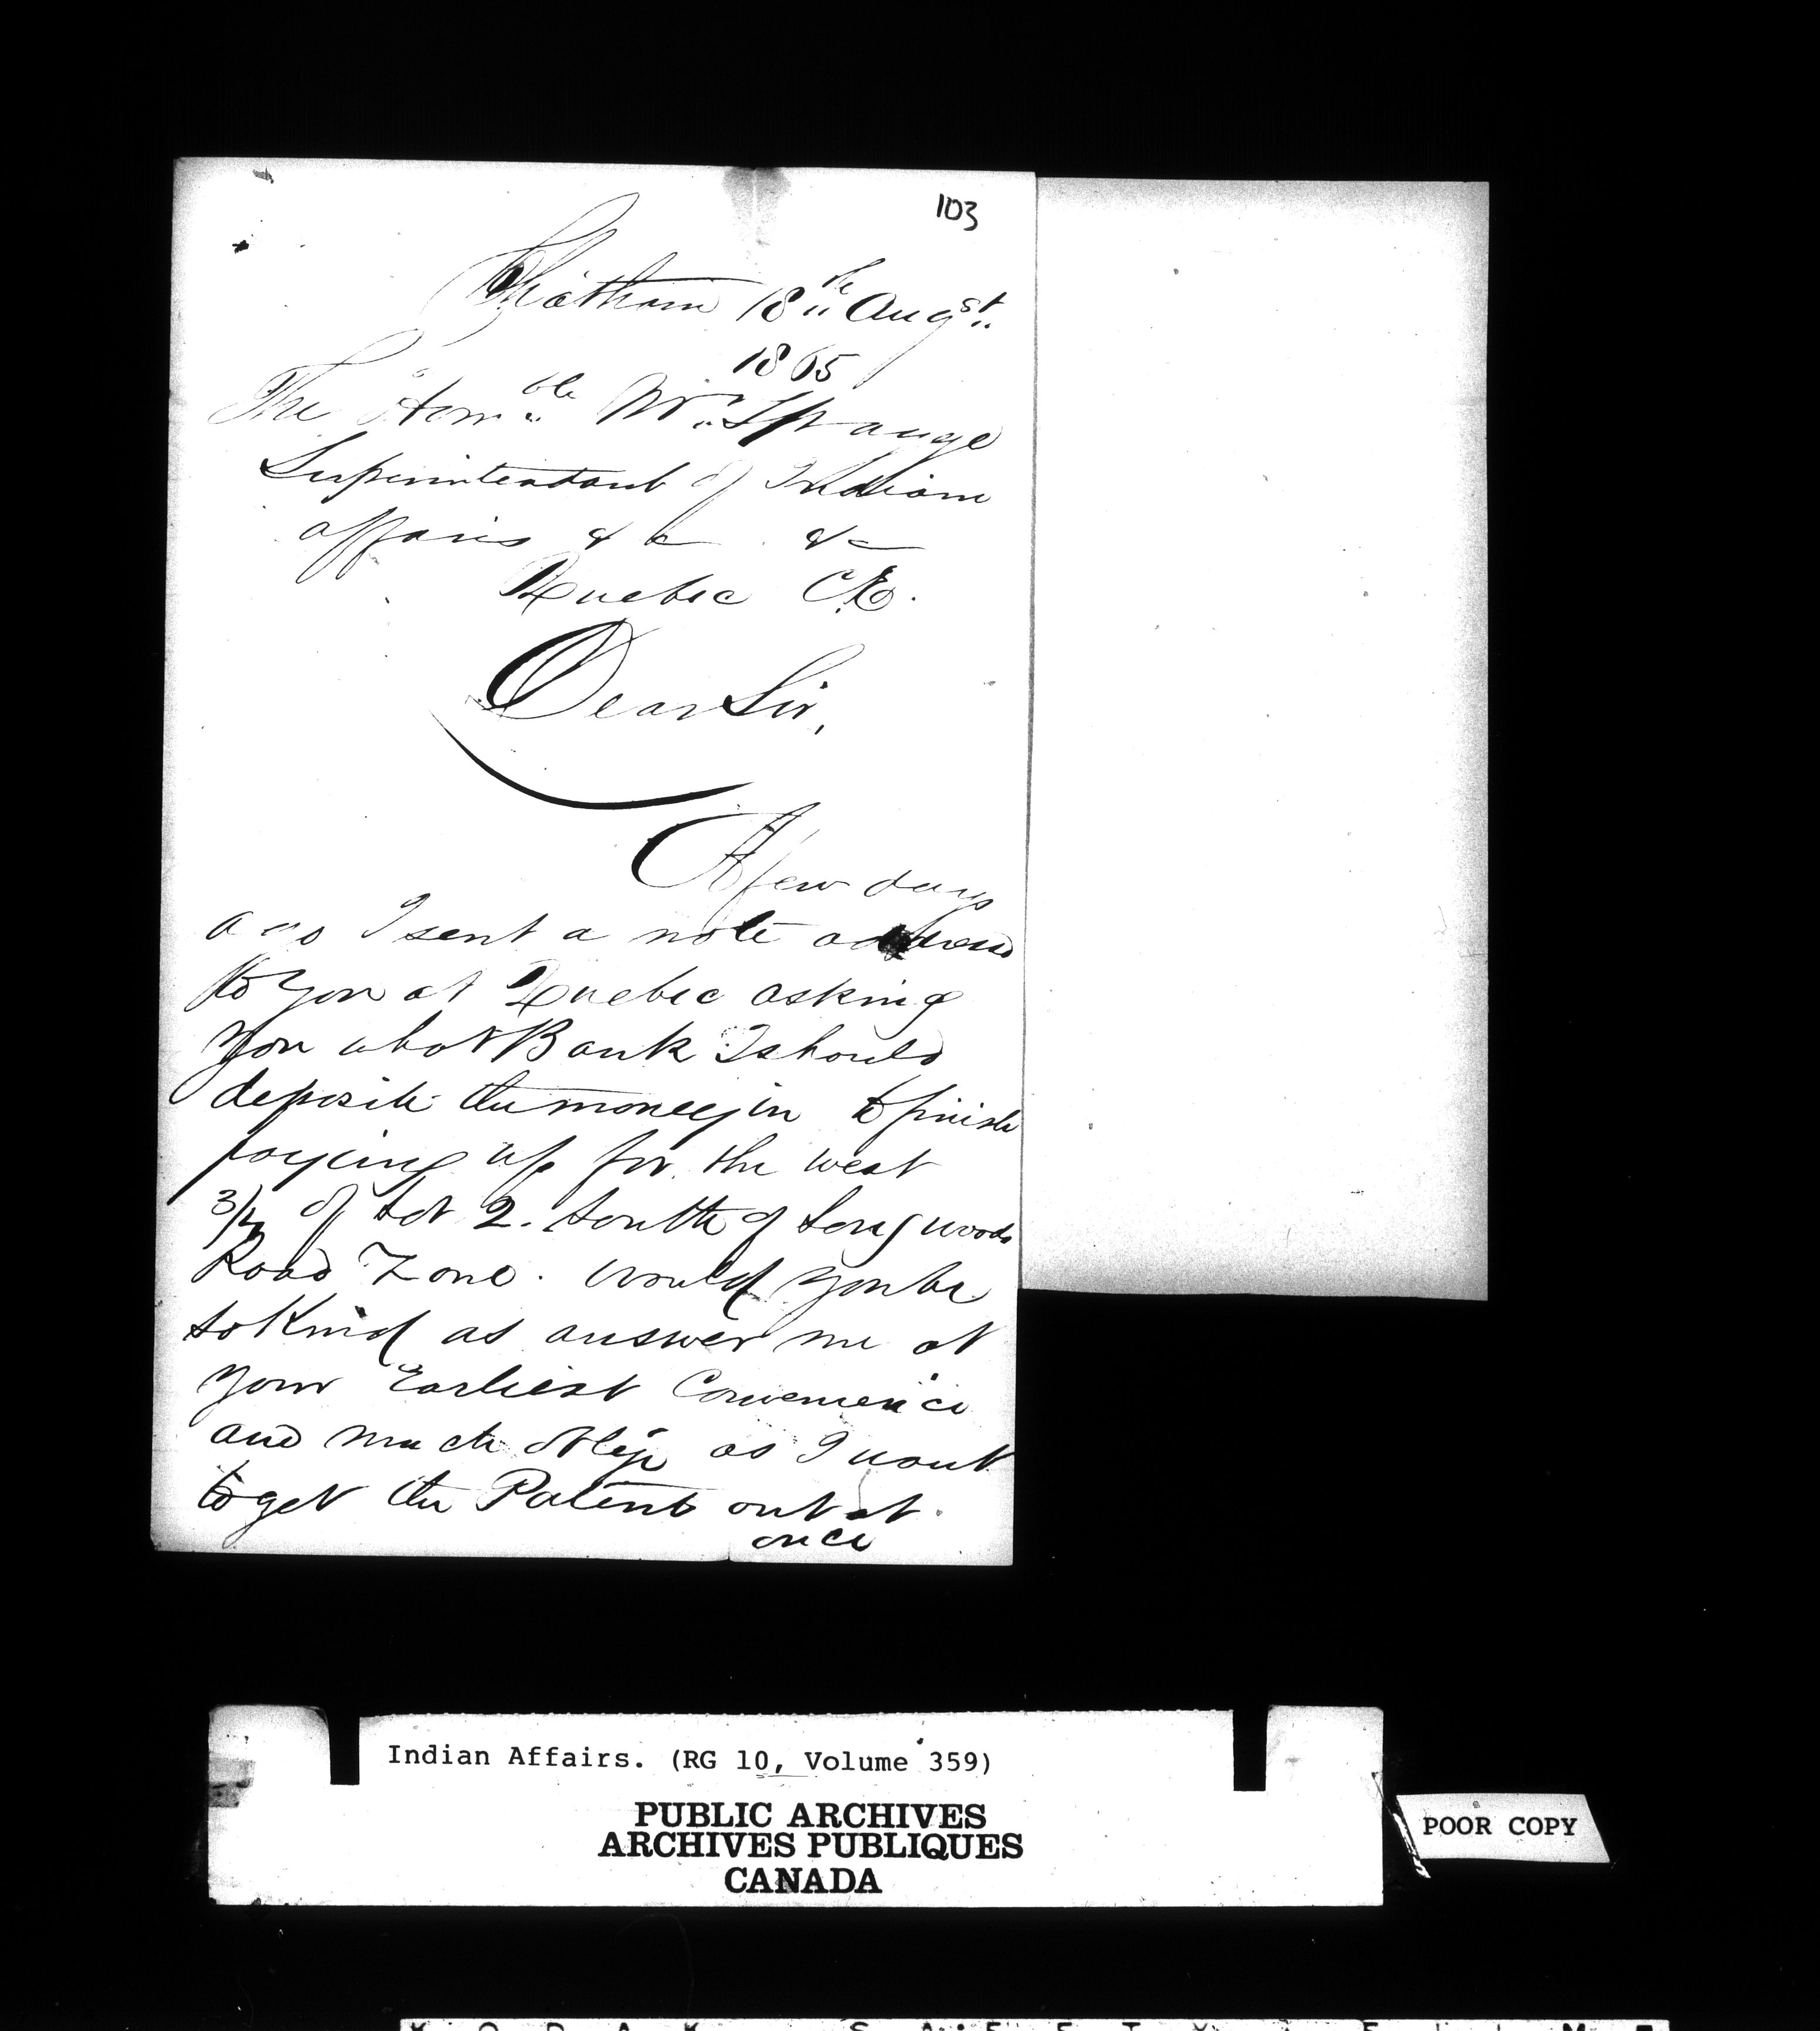 103
Chatham 18th Augst
1865
The Honble Mr Sprauge
Superintendant of Indian
affairs &c &c
Quebec C.E.
Dear Sir,
A few days
ago I sent a note address
to you at Quebec asking
you what Bank I should
deposite the money in to finish
paying up for the west
3/4 of Lot 2. South of Longwoods
Road Zone. Would you be
so Kind as answer me at
your Earliest Convenience
and much oblige as I want
to get the Patent out at
once
Indian Affairs. (RG 10, Volume 359)
PUBLIC ARCHIVES
ARCHIVES PUBLIQUES
CANADA
POOR COPY